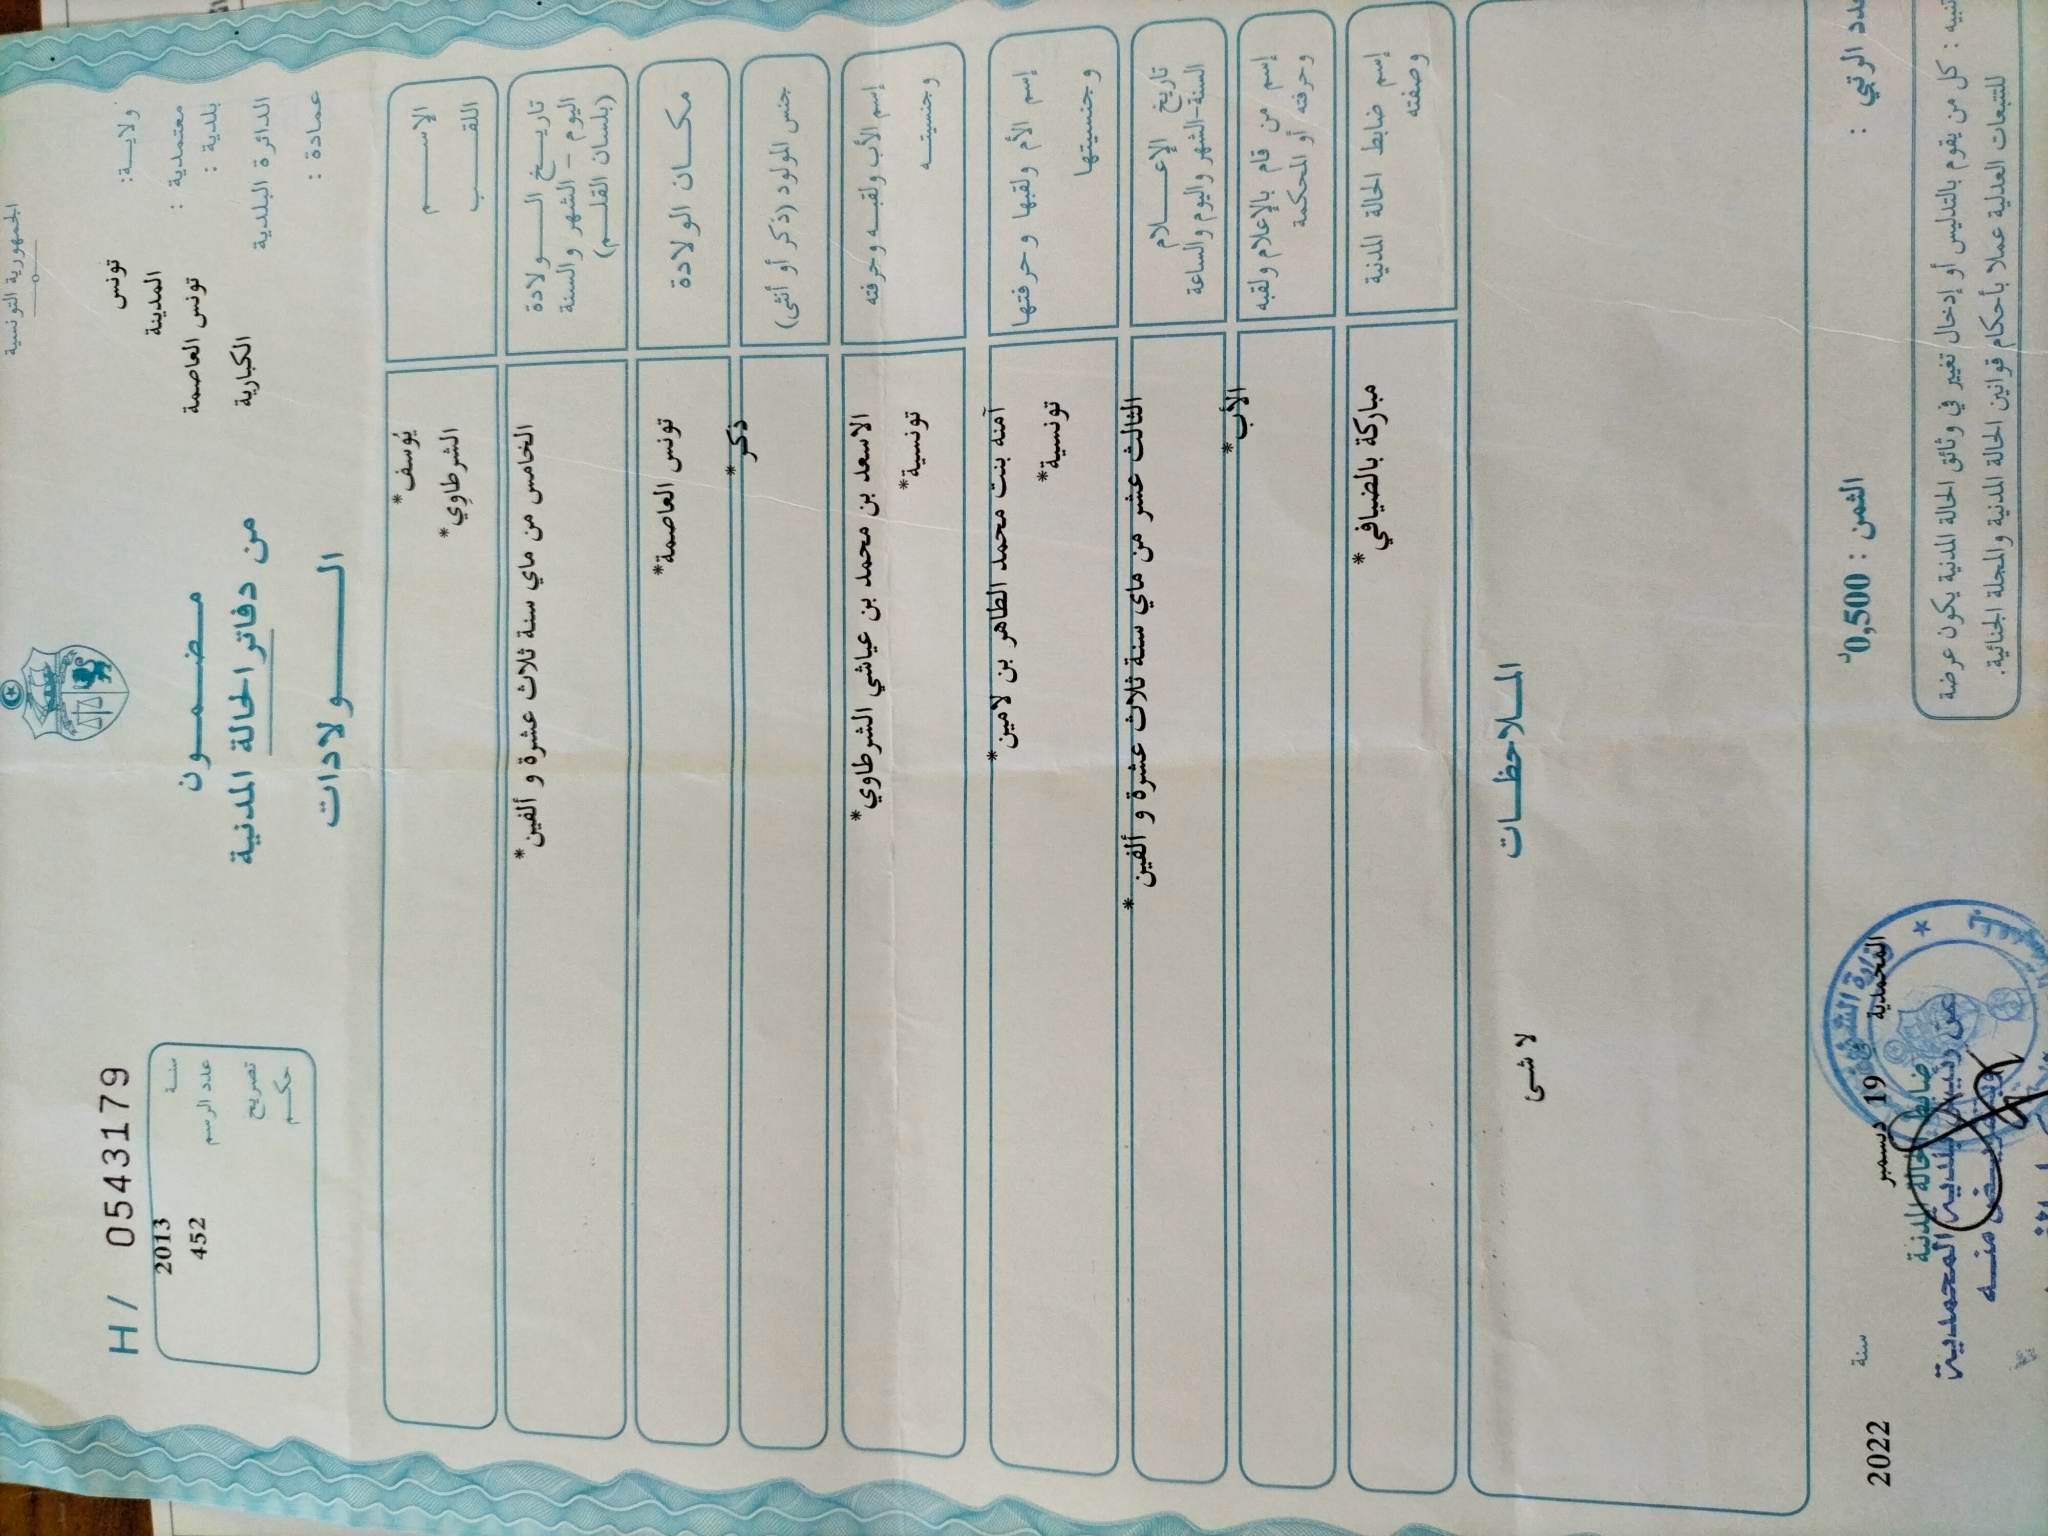 الجمهورية التونسية
ولاية: تونس
معتمدية : المدينة
بلدية : تونس العاصمة
الدائرة البلدية الكبارية
عمادة :
مضمون
من دفاتر الحالة المدنية
الولادات
H / 05431179
سنة 2013
عدد الرسم 452
تصريح
حكم
الإسم يُوسف*
اللقب الشرطاوِي*
تاريخ الولادة
اليوم - الشهر والسنة
(بلسان القلم)
الخامس من ماي سنة ثلاث عشرة و ألفين*
مكان الولادة تونس العاصمة*
جنس المولود (ذكر أو أنثى) ذكر*
إسم الأب ولقبه وحرفته الاسعد بن محمد بن عياشي الشرطاوي*
وجنسيته تونسية*
إسم الأم ولقبها وحرفتها آمنه بنت محمد الطاهر بن لامين*
وجنسيتها تونسية*
تاريخ الإعلام
السنة-الشهر واليوم والساعة
الثالث عشر من ماي سنة ثلاث عشرة و ألفين*
إسم من قام بالإعلام ولقبه
وحرفته أو المحكمة
الأب*
إسم ضابط الحالة المدنية
وصفته
مباركة بالضيافي*
الملاحظات
لا شئ
عدد الرتبي :
الثمن : 0,500د
المحمدية في 19 ديسمبر سنة 2022
ضابط الحالة المدنية
عن رئيس بلدية المحمدية
وبتفويض منه
تنبيه : كل من يقوم بالتدليس أو إدخال تغيير في وثائق الحالة المدنية يكون عرضة
للتتبعات العدلية عملا بأحكام قوانين الحالة المدنية والمجلة الجنائية.